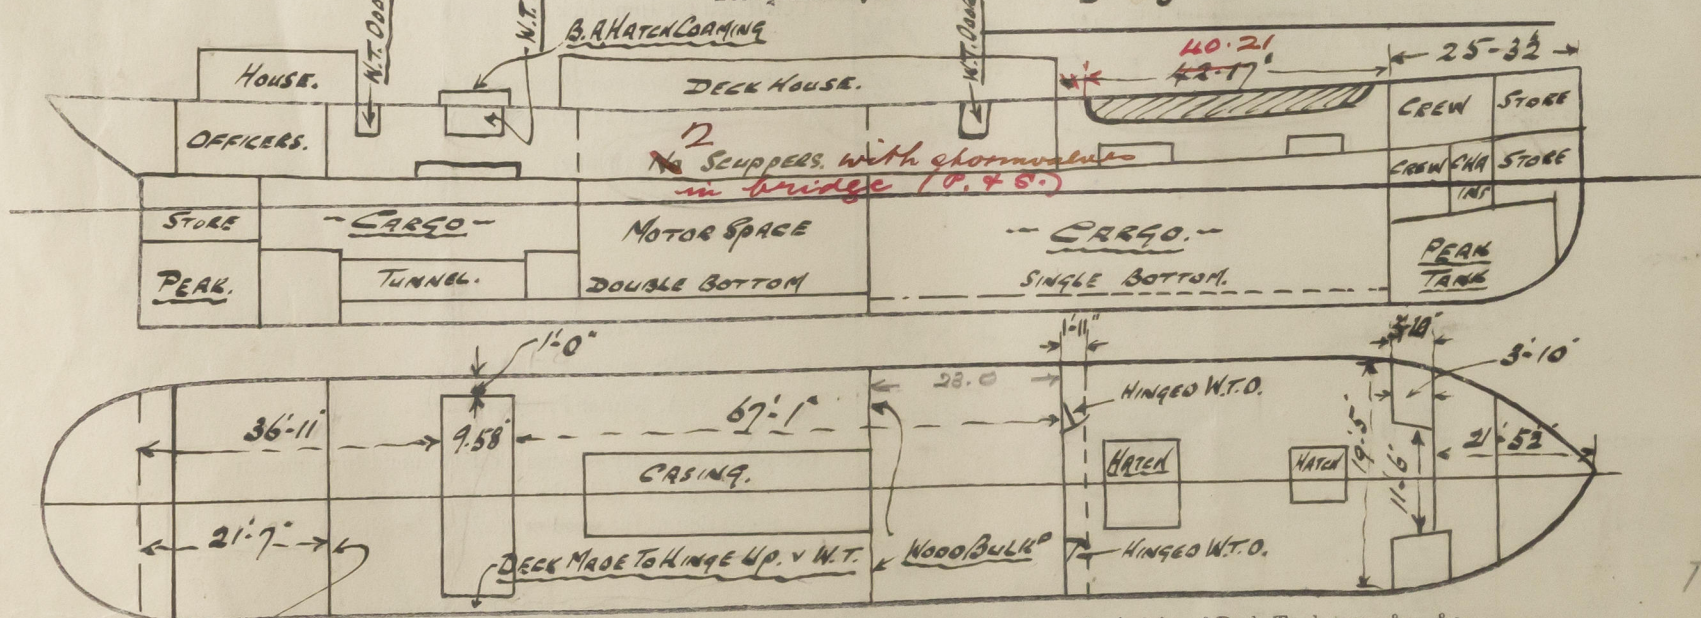 W.T. DOOR
W.T.
B.A HATCH COAMING
W.T. DOOR
40.21
42.17'
25-3½
HOUSE.
DECK HOUSE.
CREW
STORE
OFFICERS.
2
No SCUPPERS. with stormvalves
in bridge (P. & S.)
CREW
CHA
INS
STORE
STORE
-CARGO-
MOTOR SPACE
-CARGO.-
PEAK
TANK
PEAK.
TUNNEL.
DOUBLE BOTTOM
SINGLE BOTTOM.
1'-0"
1'-11"
3'-10"
3'-10"
23.0
HINGED W.T.D.
36'-11"
9.58'
67'-1"
CASING.
HATCH
HATCH
19'-5"
11'-6"
21'-5½"
21'-7"
DECK MADE TO HINGE UP. & W.T.
WOOD BULKD
HINGED W.T.D.